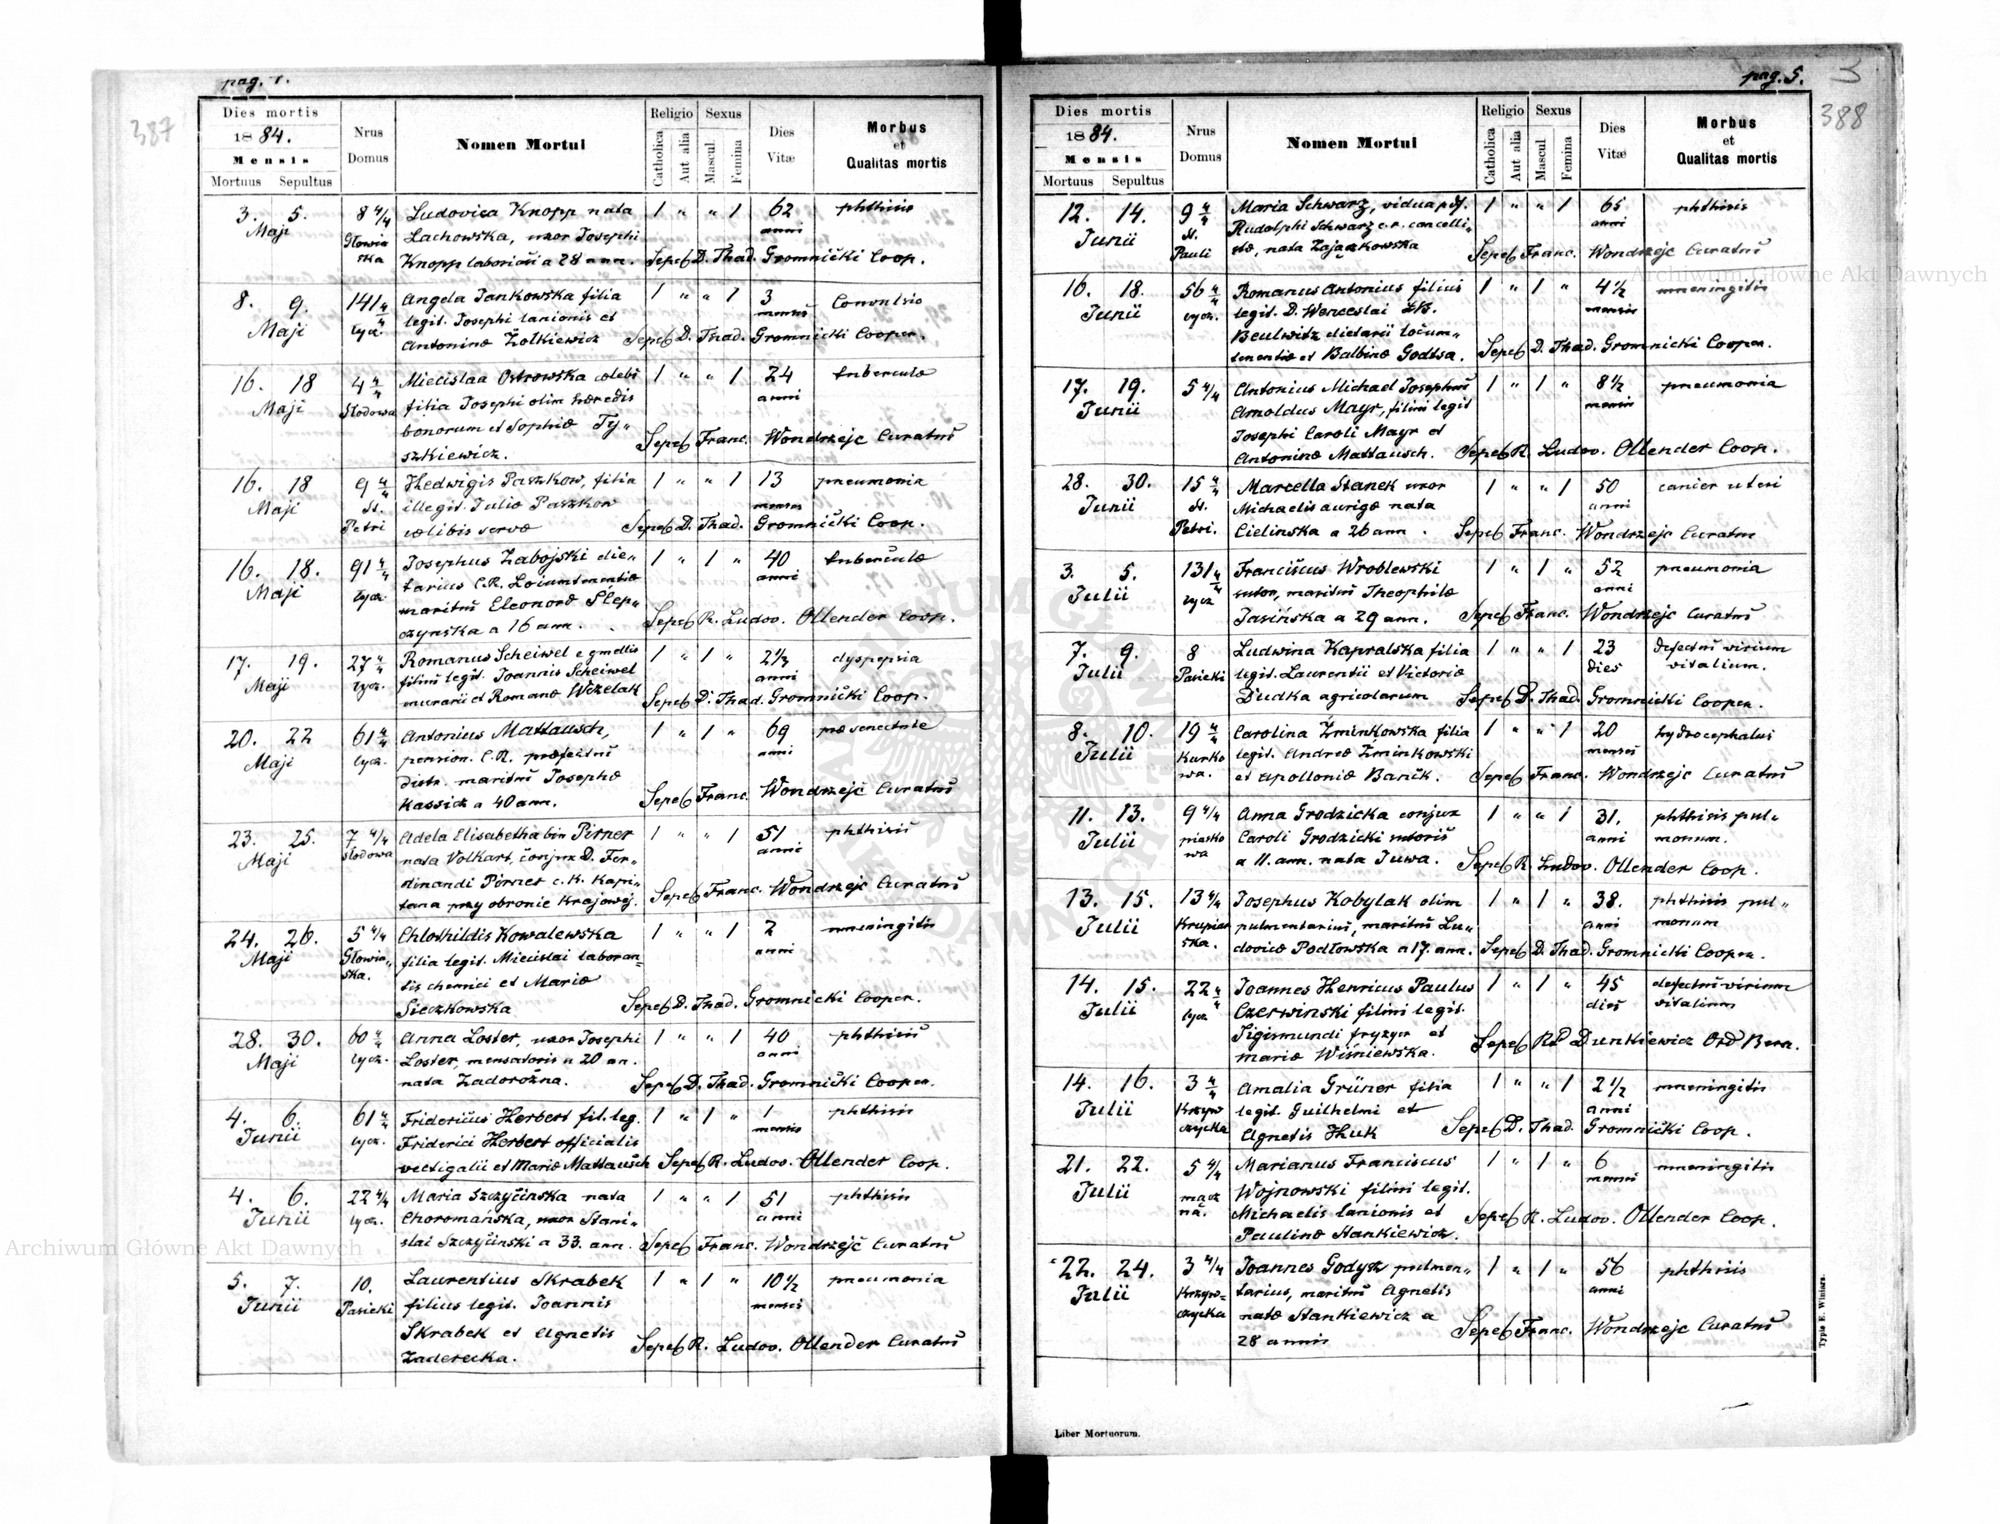 387
Dies mortis
1884.
Mensis
Mortuus Sepultus
Nrus
Domus
Nomen Mortui
Religio
Catholica
Aut alia
Sexus
Mascul.
Femina
Dies
Vitæ
Morbus
et
Qualitas mortis
3. 5. 8 4/4 Ludovica Knopp nata 1 " " 1 62 phthisis
Maji Lachowska, uxor Josephi anni
Knopp laborioši a 28 ann. Sepel D. Thad. Gromnički Coop.
8. 9. 141 4/4 Angela Jankowska filia 1 " " 1 3 Convulsio
Maji lycz legit. Josephi lanionis et mensis
Antoninæ Żołkiewicz Sepel D. Thad. Gromnicki Cooper.
16. 18 4 4/4 Miecislaa Ostrowska cœlebs 1 " " 1 24 tuberculæ
Maji Słodowa filia Josephi olim hæredis anni
bonorum et Sophiæ Ty„ Sepel Franc. Wondrzejc Curatus
szkiewicz.
16. 18 9 4/4 Hedwigis Paszkow, filia 1 " " 1 13 pneumonia
Maji St. illegit. Juliæ Paszkow menses
Petri cœlibis servæ Sepel D. Thad. Gromnički Coop.
16. 18. 91 4/4 Josephus Zabojski die„ 1 " 1 " 40 tuberculæ
Maji lycz. tarius C.R. Locumtenentiæ anni
maritus Eleonoræ Ślep„
czynska a 16 ann. Sepel R. Ludov. Ollender Coop.
17. 19. 27 4/4 Romanus Scheiwel e gmellis 1 " 1 " 2 1/3 dyspepsia
Maji lycz. filius legit. Joannis Scheiwel anni
murarii et Romanæ Wczelak Sepel D. Thad. Gromnički Coop.
20. 22 61 4/4 Antonius Mattausch, 1 " 1 " 69 præ senectute
Maji lycz. pension. C.R. præfectus anni
Distr. maritus Josephæ
Kassicz a 40 ann. Sepel Franc. Wondrzejc Curatus
23. 25. 7 4/4 Adela Elisabetha bin Pirner 1 " " 1 51 phthisis
Maji Słodowa nata Volkart, conjux D. Fer„ anni
dinandi Pirner c.k. Kapi„ Sepel Franc. Wondrzejc Curatus
tana przy obronie Krajowej.
24. 26. 5 4/4 Chlothildis Kowalewska 1 " " 1 2 meningitis
Maji Głowia„ filia legit. Miecislai laboran„ anni
ska. tis chemici et Mariæ
Sieczkowska Sepel D. Thad. Gromnicki Cooper.
28. 30. 60 4/4 Anna Loster, uxor Josephi 1 " " 1 40 phthisis
Maji lycz. Loster, mensatoris a 20 an. anni
nata Zadorożna. Sepel D. Thad. Gromnički Cooper.
4. 6. 61 4/4 Fridericus Herbert fil. leg. 1 " 1 " 1 phthisis
Junii lycz. Friderici Herbert officialis mensis
vectigalii et Mariæ Mattausch Sepel R. Ludov. Ollender Coop.
4. 6. 22 4/4 Maria Szczycinska nata 1 " " 1 51 phthisis
Junii lycz. Choromańska, uxor Stani„ anni
slai Szczycinski a 33. ann. Sepel Franc. Wondrzejc Curatus
5. 7. 10. Laurentius Skrabek 1 " 1 " 10 1/2 pneumonia
Junii Pasieki filius legit. Joannis menses
Skrabek et Agnetis Sepel R. Ludov. Ollender Curatus
Zaderecka.
pag. 5.
388
Dies mortis
1884.
Mensis
Mortuus Sepultus
Nrus
Domus
Nomen Mortui
Religio
Catholica
Aut alia
Sexus
Mascul.
Femina
Dies
Vitæ
Morbus
et
Qualitas mortis
12. 14. 9 4/4 Maria Schwarz, vidua p. def. 1 " " 1 65 phthisis
Junii St. Rudolphi Schwarz c.r. cancelli„ anni
Pauli stæ, nata Zajączkowska Sepel Franc. Wondrzejc Curatus
16. 18. 56 4/4 Romanus Antonius filius 1 " 1 " 4 1/2 meningitis
Junii lycz. legit. D. Wenceslai menses
Beulwitz dietarii locum„
tenentiæ et Balbinæ Godtsa. Sepel D. Thad. Gromnicki Cooper.
17. 19. 5 4/4 Antonius Michael Josephus 1 " 1 " 8 1/2 pneumonia
Junii Arnoldus Mayr, filius legit menses
Josephi Caroli Mayr et
Antoninæ Mattausch. Sepel R. Ludov. Ollender Coop.
28. 30. 15 4/4 Marcella Stanek uxor 1 " " 1 50 cancer uteri
Junii St. Michaelis aurigæ nata anni
Petri. Cielinska a 26 ann. Sepel Franc. Wondrzejc Curatus
3. 5. 131 4/4 Franciscus Wroblewski 1 " 1 " 52 pneumonia
Julii lycz sutor, maritus Theophilæ anni
Jasińska a 29 ann. Sepel Franc. Wondrzejc Curatus
7. 9. 8 Ludwina Kapralska filia 1 " " 1 23 defectus virium
Julii Pasieki legit. Laurentii et Victoriæ dies vitalium.
Dudka agricolarum Sepel D. Thad. Gromnicki Cooper.
8. 10. 19 4/4 Carolina Zminkowska filia 1 " " 1 20 hydrocephalus
Julii Kurko legit. Andreæ Zminkowski menses
wa. et Apolloniæ Banik. Sepel Franc. Wondrzejc Curatus
11. 13. 9 4/4 Anna Grodzicka conjux 1 " " 1 31. phthisis pul„
Julii piasko Caroli Grodzicki sutoris anni monum.
wa a 11. ann. nata Juwa. Sepel R. Ludov. Ollender Coop.
13. 15. 13 4/4 Josephus Kobylak olim 1 " 1 " 38. phthisis pul„
Julii Krupiar pulmentarius, maritus Lu„ anni monum
ska. dovicæ Podłowska a 17. ann. Sepel D. Thad. Gromnicki Cooper.
14. 15. 22 4/4 Joannes Henricus Paulus 1 " 1 " 45 defectus virium
Julii lycz Czerwinski filius legit. dies vitalium
Sigismundi fryzyer et
Mariæ Wiśniewska. Sepel RP Dunkiewicz Ord Bern.
14. 16. 3 4/4 Amalia Grüner filia 1 " " 1 2 1/2 meningitis
Julii Krzyw legit. Guilhelmi et anni
czycka Agnetis Huk Sepel D. Thad. Gromnički Coop.
21. 22. 5 4/4 Marianus Franciscus 1 " 1 " 6 meningitis
Julii mącz Wojnowski filius legit. menses
na. Michaelis lanionis et
Paulinæ Stankiewicz. Sepel R. Ludov. Ollender Coop.
22. 24. 3 4/4 Joannes Godysz pulmen„ 1 " 1 " 56 phthisis
Julii Krzyw„ tarius, maritus Agnetis anni
czycka natæ Stankiewicz a
28 annis Sepel Franc. Wondrzejc Curatus
Typis E. Winiarz.
Liber Mortuorum.
Archiwum Główne Akt Dawnych
Archiwum Główne Akt Dawnych
ARCHIWUM GŁÓWNE AKT DAWNYCH